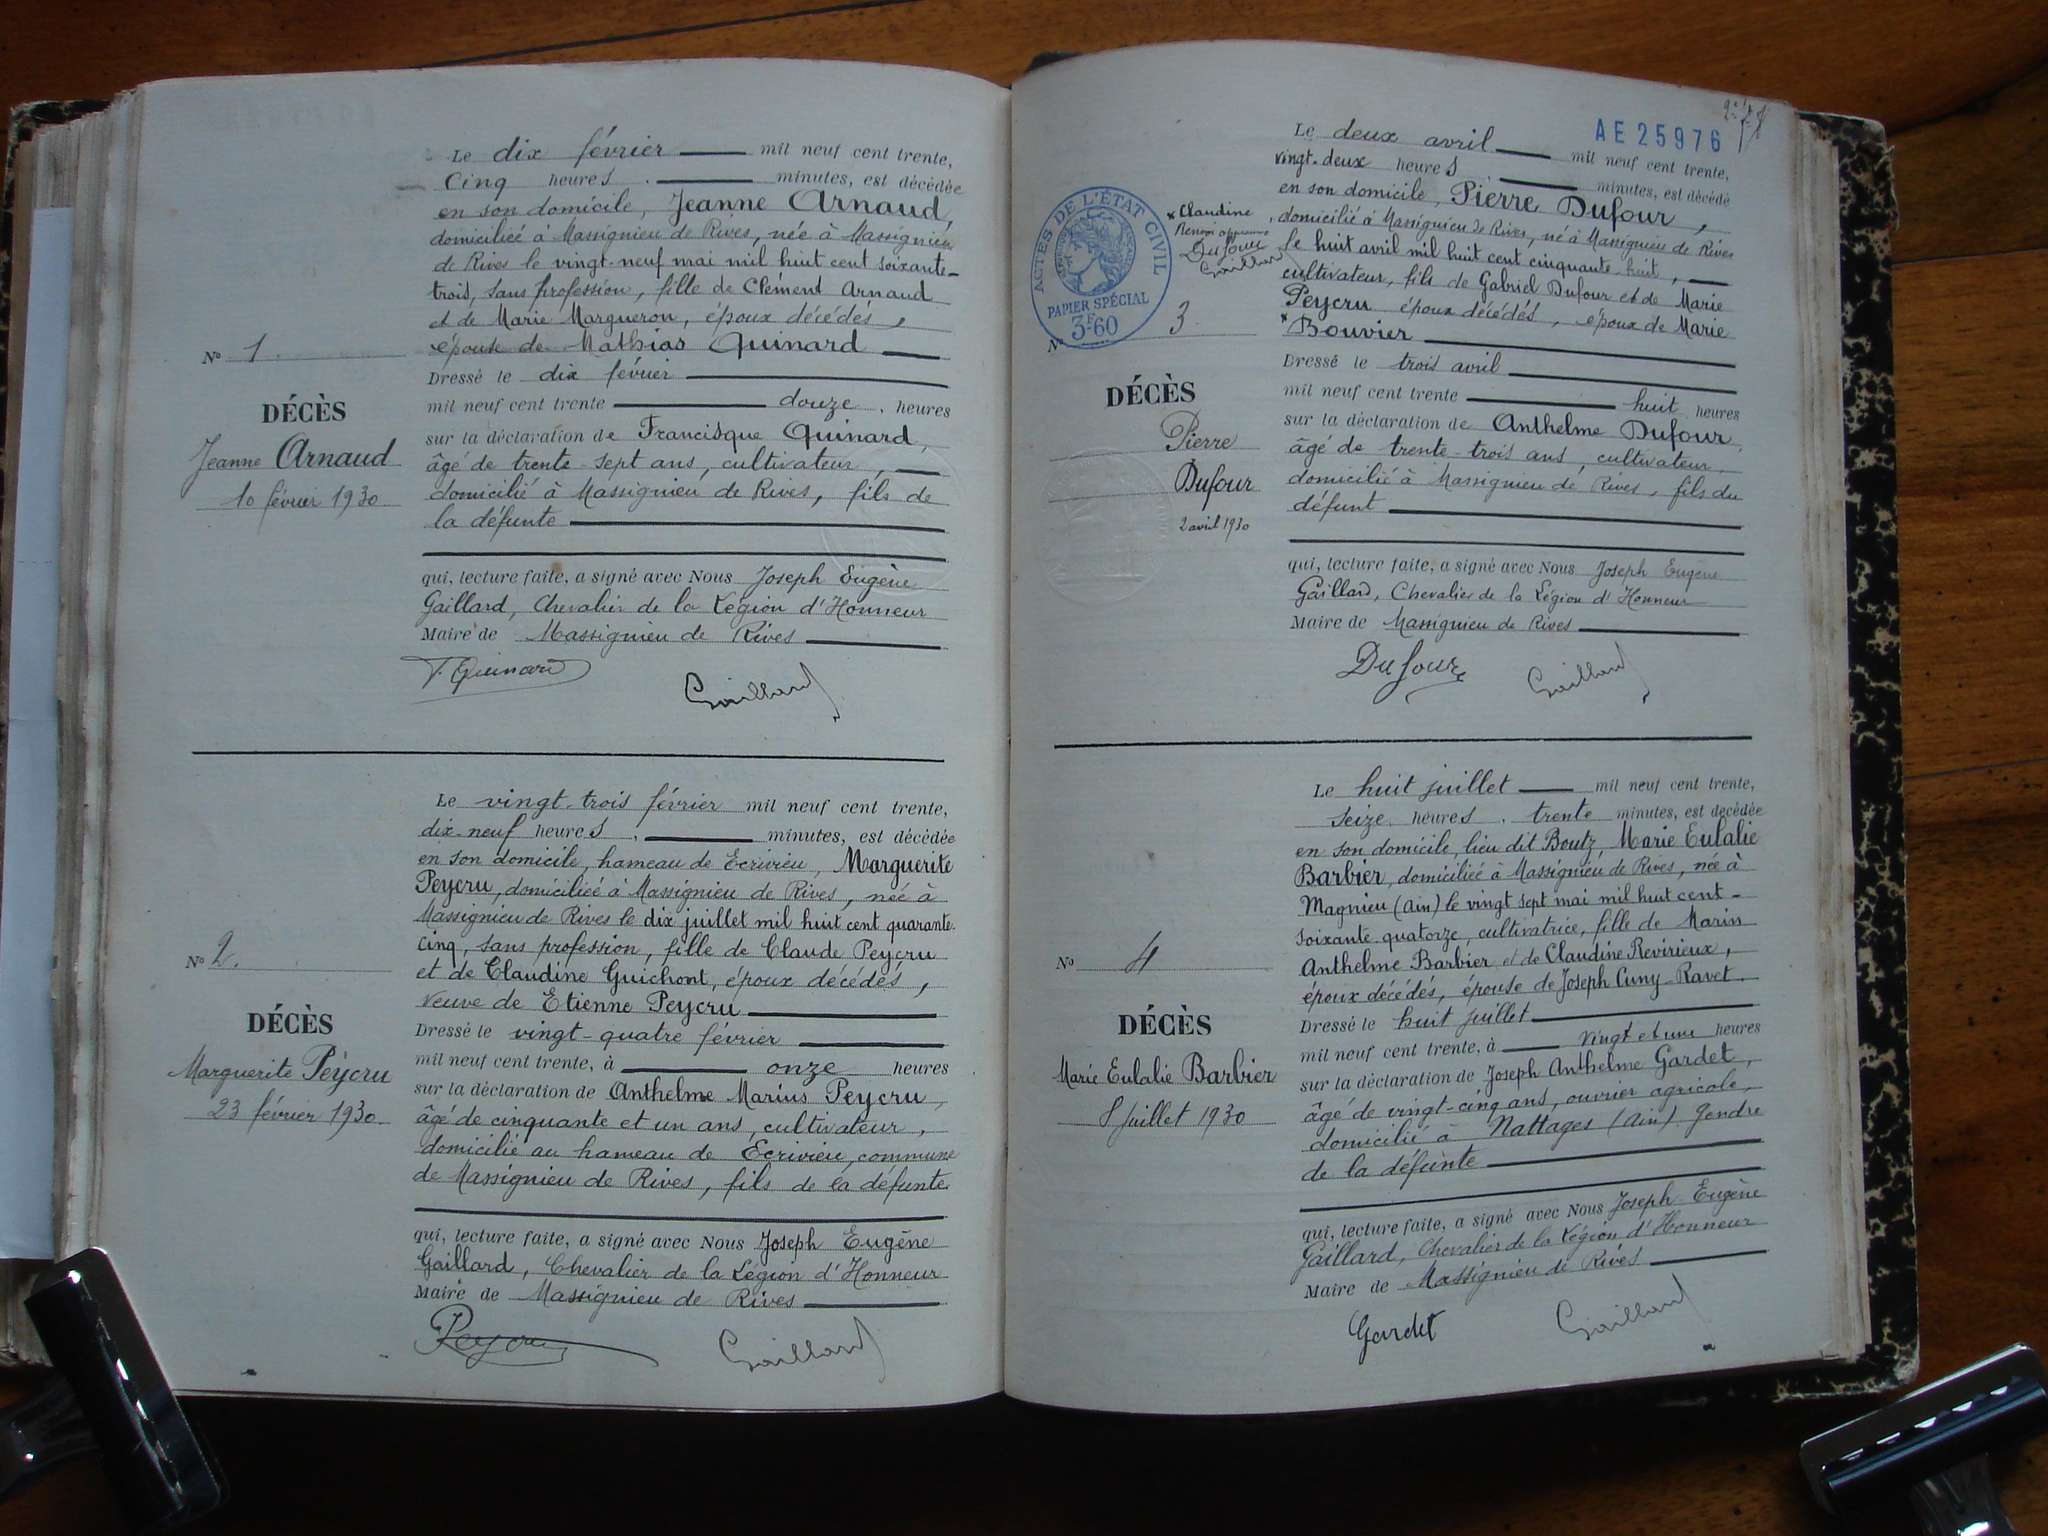 Le dix février mil neuf cent trente,
Cinq heures . minutes, est décédée
en son domicile, Jeanne Arnaud,
domiciliée à Massignieu de Rives, née à Massignieu
de Rives le vingt-neuf mai mil huit cent soixante-
trois, sans profession, fille de Clément Arnaud
et de Marie Margueron, époux décédés,
épouse de Mathias Quinard
Nº 1.
Dressé le dix février
mil neuf cent trente douze, heures
DÉCÈS
sur la déclaration de Francisque Quinard,
Jeanne Arnaud
âgé de trente-sept ans, cultivateur,
10 février 1930
domicilié à Massignieu de Rives, fils de
la défunte
qui, lecture faite, a signé avec Nous Joseph Eugène
Gaillard, Chevalier de la Légion d'Honneur
Maire de Massignieu de Rives
F. Quinard
Gaillard
Le vingt-trois février mil neuf cent trente,
dix-neuf heures . minutes, est décédée
en son domicile, hameau de Ecrivieu, Marguerite
Peycru, domiciliée à Massignieu de Rives, née à
Massignieu de Rives le dix juillet mil huit cent quarante-
cinq, sans profession, fille de Claude Peycru
Nº 2.
et de Claudine Guichont, époux décédés,
veuve de Etienne Peycru
DÉCÈS
Dressé le vingt-quatre février
mil neuf cent trente, à onze heures
Marguerite Peycru
sur la déclaration de Anthelme Marius Peycru,
23 février 1930
âgé de cinquante et un ans, cultivateur,
domicilié au hameau de Ecrivieu, commune
de Massignieu de Rives, fils de la défunte
qui, lecture faite, a signé avec Nous Joseph Eugène
Gaillard, Chevalier de la Légion d'Honneur
Maire de Massignieu de Rives
Peycru
Gaillard
AE 25976
Le deux avril mil neuf cent trente,
vingt-deux heures . minutes, est décédé
en son domicile, Pierre Dufour,
domicilié à Massignieu de Rives, né à Massignieu de Rives
le huit avril mil huit cent cinquante-huit,
cultivateur, fils de Gabriel Dufour et de Marie
Peycru époux décédés, époux de Marie
* Bouvier
* Claudine
Renvoi approuvé
Dufour
Gaillard
ACTES DE L'ÉTAT CIVIL
PAPIER SPÉCIAL
3F60
Nº 3
Dressé le trois avril
mil neuf cent trente huit heures
DÉCÈS
sur la déclaration de Anthelme Dufour,
Pierre
âgé de trente-trois ans, cultivateur,
Dufour
domicilié à Massignieu de Rives, fils du
2 avril 1930
défunt
qui, lecture faite, a signé avec Nous Joseph Eugène
Gaillard, Chevalier de la Légion d'Honneur
Maire de Massignieu de Rives
Dufour
Gaillard
Le huit juillet mil neuf cent trente,
seize heures . trente minutes, est décédée
en son domicile, lieu dit Boutz, Marie Eulalie
Barbier, domiciliée à Massignieu de Rives, née à
Magnieu (Ain) le vingt sept mai mil huit cent-
soixante-quatorze, cultivatrice, fille de Marin
Nº 4
Anthelme Barbier et de Claudine Revirieux,
époux décédés, épouse de Joseph Cuny-Ravet.
DÉCÈS
Dressé le huit juillet
mil neuf cent trente, à vingt et une heures
Marie Eulalie Barbier
sur la déclaration de Joseph Anthelme Gardet,
8 Juillet 1930
âgé de vingt-cinq ans, ouvrier agricole,
domicilié à Nattages (Ain) gendre
de la défunte
qui, lecture faite, a signé avec Nous Joseph-Eugène
Gaillard, Chevalier de la Légion d'Honneur
Maire de Massignieu de Rives
Gardet
Gaillard